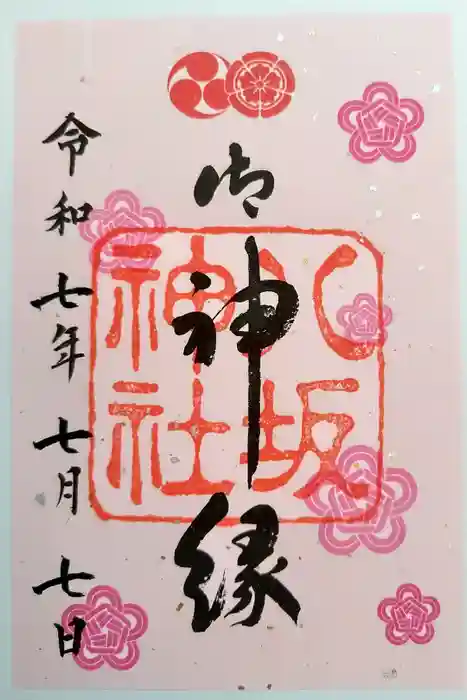 御神縁
八坂神社
令和七年七月七日